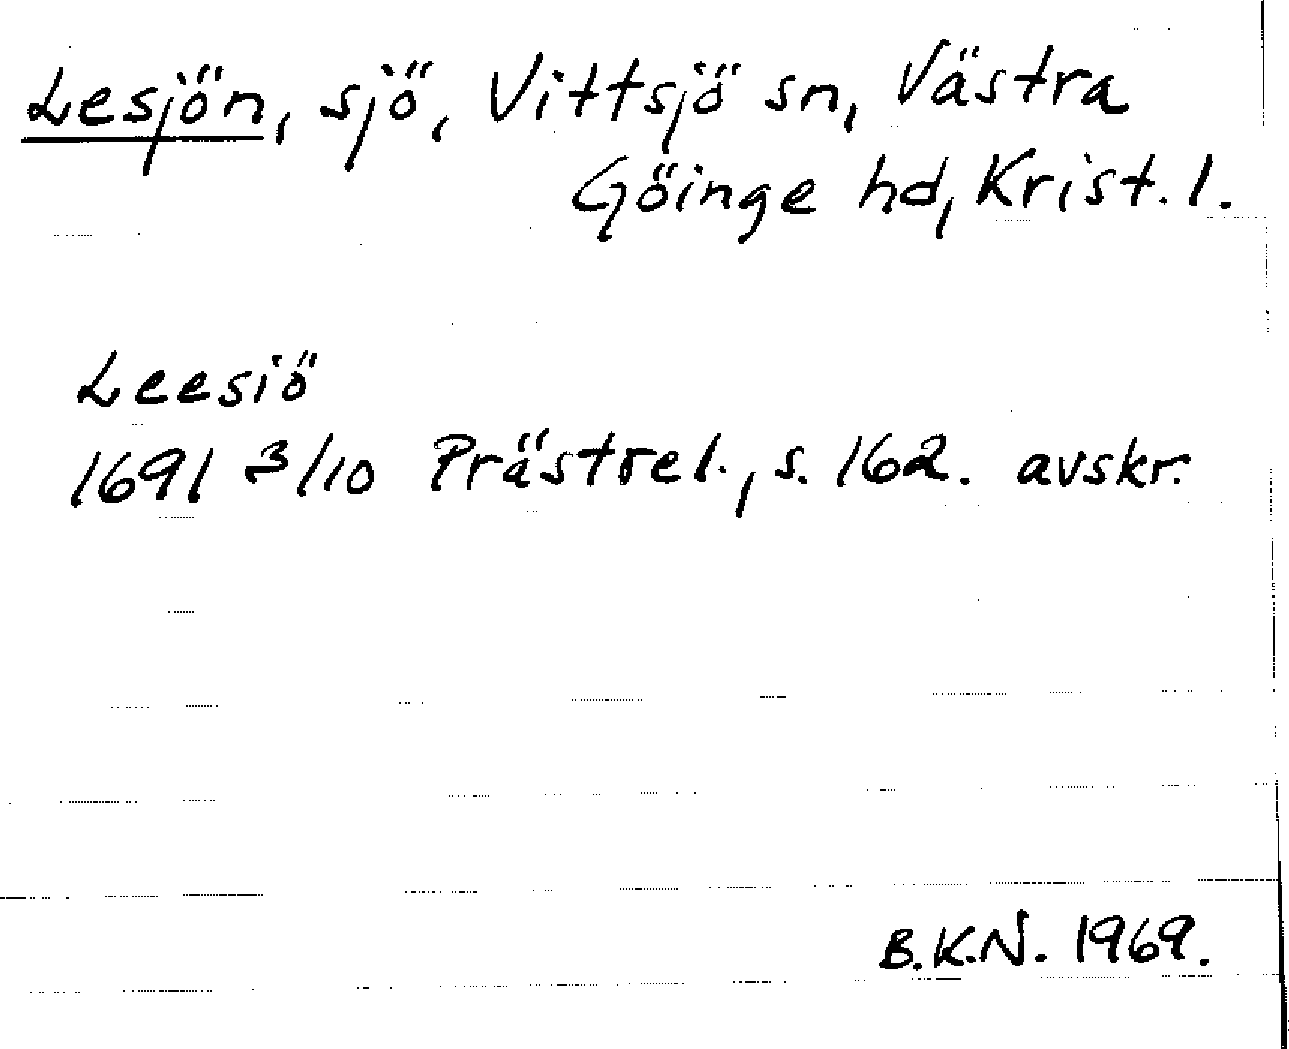 Lesjön, sjö, Vittsjö sn, Västra
Göinge hd, Krist. l.
Leesiö
1691 3/10 Prästrel., s. 162. avskr.
B.K.N. 1969.